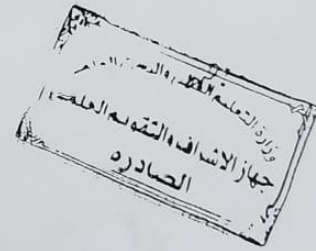 وزارة التعليم العالي والبحث العلمي
جهاز الاشراف والتقويم العلمي
الصادره